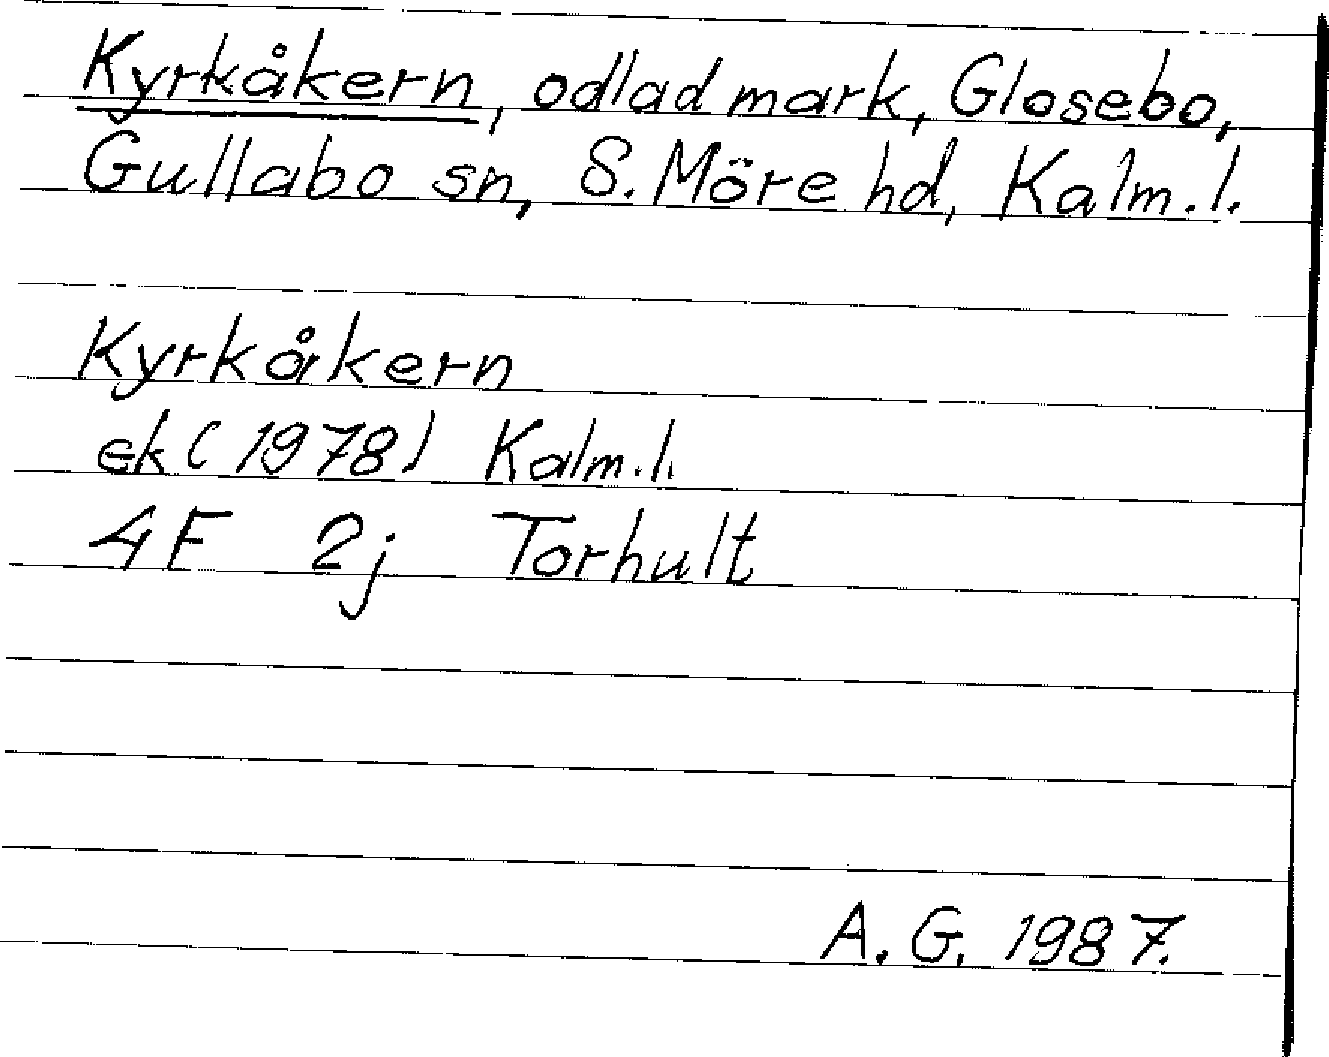 Kyrkåkern, odlad mark, Glosebo,
Gullabo sn, S. Möre hd, Kalm. l.
Kyrkåkern
ek (1978) Kalm. l.
4F 2j Torhult
A. G. 1987.